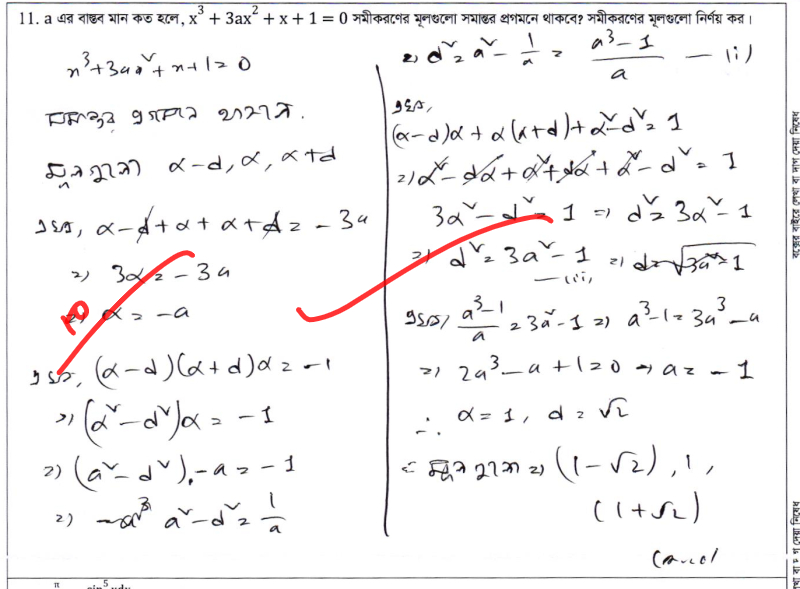 11. a এর বাস্তব মান কত হলে, x³ + 3ax² + x + 1 = 0 সমীকরণের মূলগুলো সমান্তর প্রগমনে থাকবে? সমীকরণের মূলগুলো নির্ণয় কর।
x³+3ax²+x+1=0
সমান্তর প্রগমনে থাকলে,
মূলগুলো α-d, α, α+d
এখন, α-d+α+α+d = -3a
⇒ 3α = -3a
⇒ α = -a
10
এখন, (α-d)(α+d)α = -1
⇒ (α²-d²)α = -1
⇒ (a²-d²).-a = -1
⇒ a²-d² = 1/a
⇒ d² = a² - 1/a = (a³-1)/a — (i)
এখন,
(α-d)α + α(α+d) + α²-d² = 1
⇒ α² - dα + α² + dα + α² - d² = 1
3α² - d² = 1 ⇒ d² = 3α² - 1
⇒ d² = 3a² - 1 ⇒ d = √(3a²-1)
— (ii)
এখন, (a³-1)/a = 3a²-1 ⇒ a³-1 = 3a³-a
⇒ 2a³-a+1=0 → a = -1
∴ α = 1, d = √2
∴ মূলগুলো ⇒ (1-√2), 1,
(1+√2)
বক্সের বাইরে লেখা বা দাগ দেয়া নিষেধ